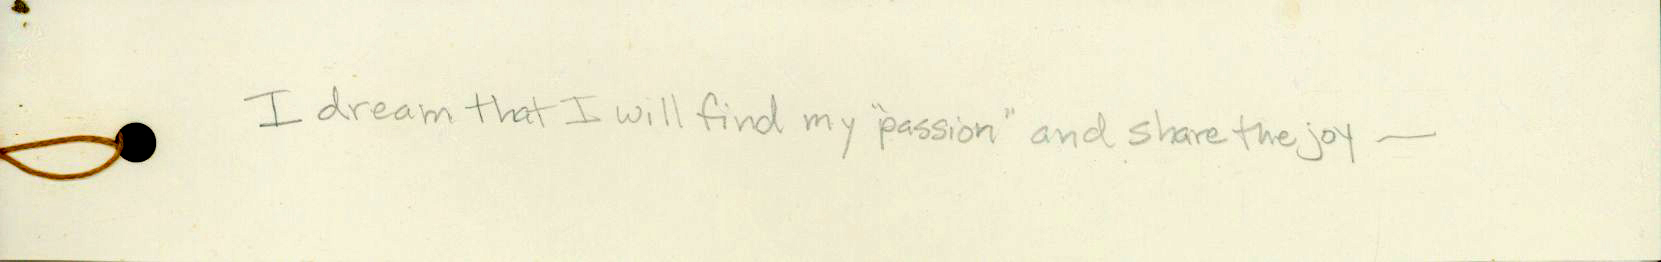 I dream that I will find my "passion" and share the joy —